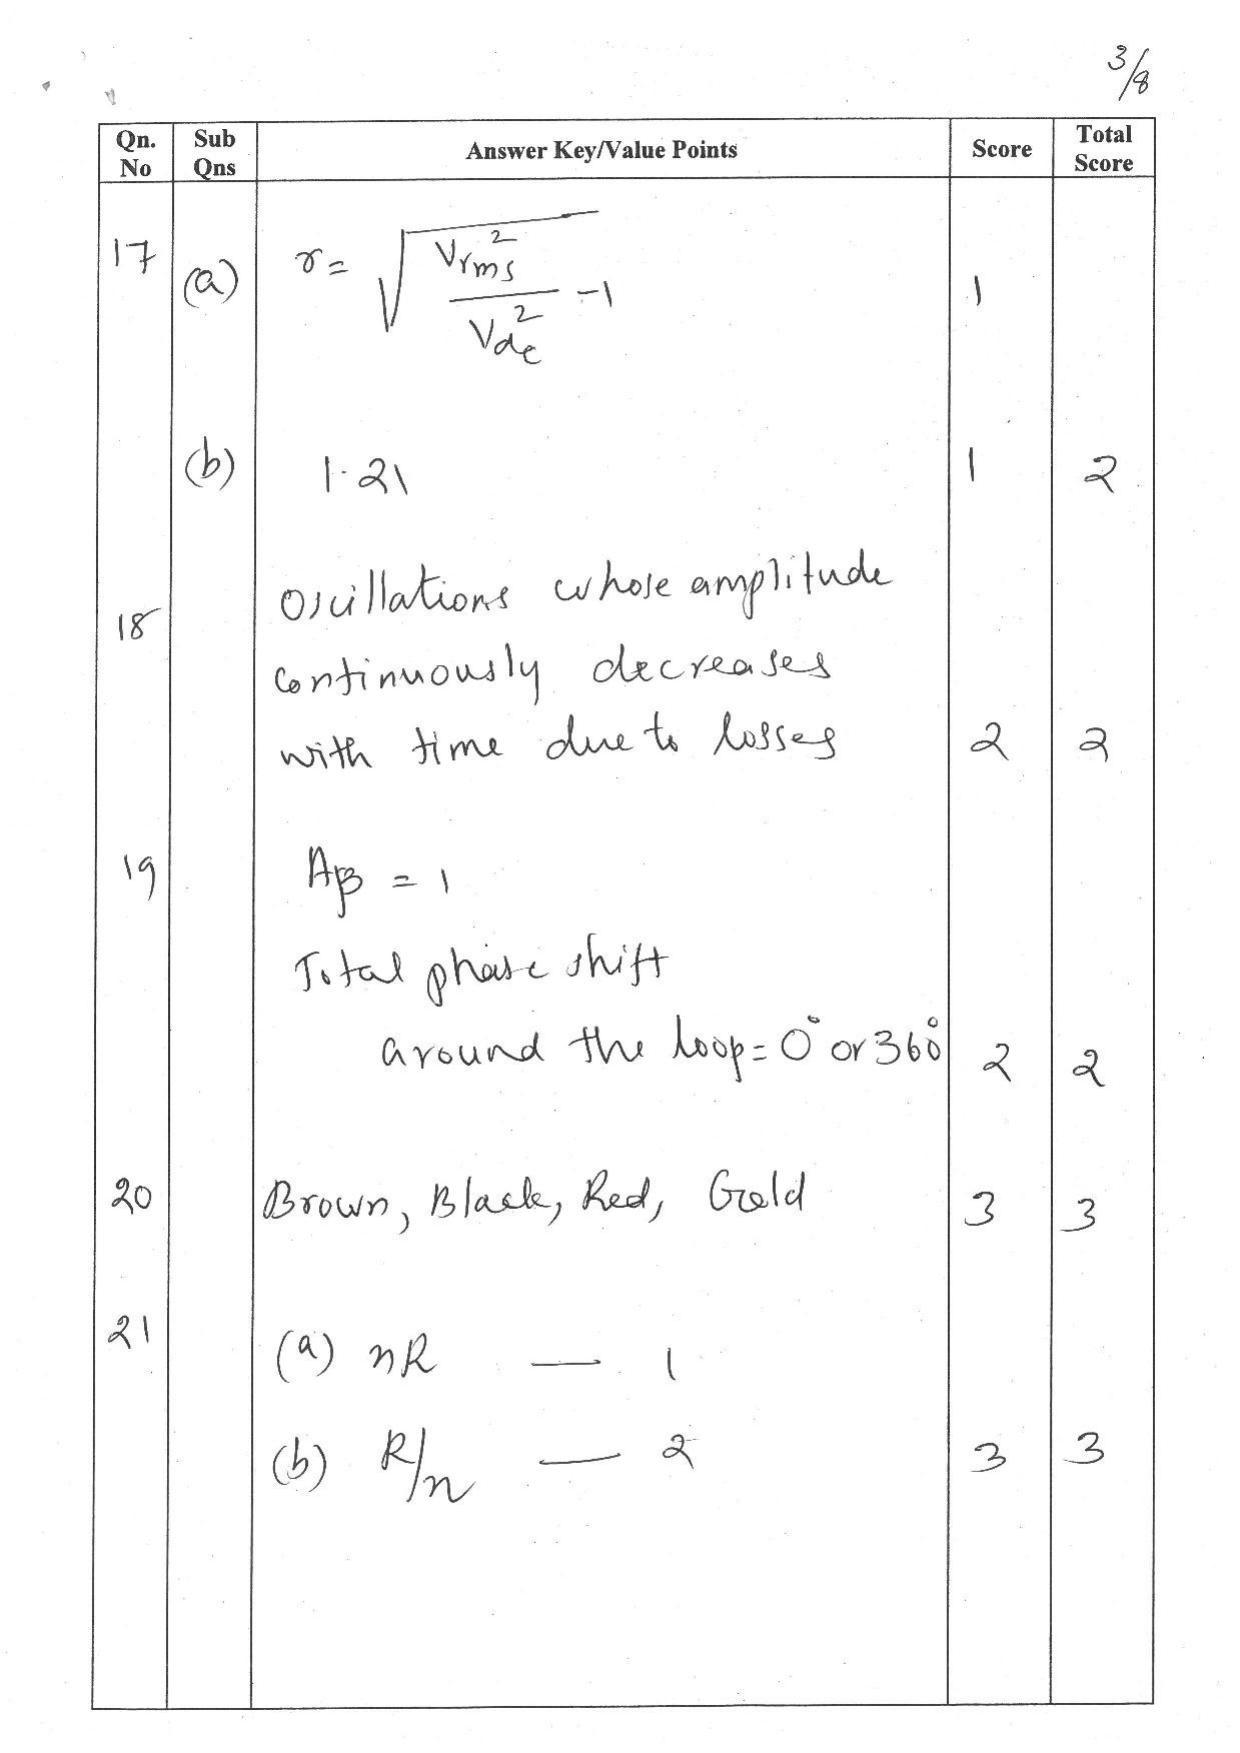 3/8
Qn. No Sub Qns Answer Key/Value Points Score Total Score
17 (a) r = √(Vrms²/Vdc² - 1) 1
(b) 1.21 1 2
18 Oscillations whose amplitude
continuously decreases
with time due to losses 2 2
19 Aβ = 1
Total phase shift
around the loop = 0° or 360° 2 2
20 Brown, Black, Red, Gold 3 3
21 (a) nR — 1
(b) R/n — 2 3 3